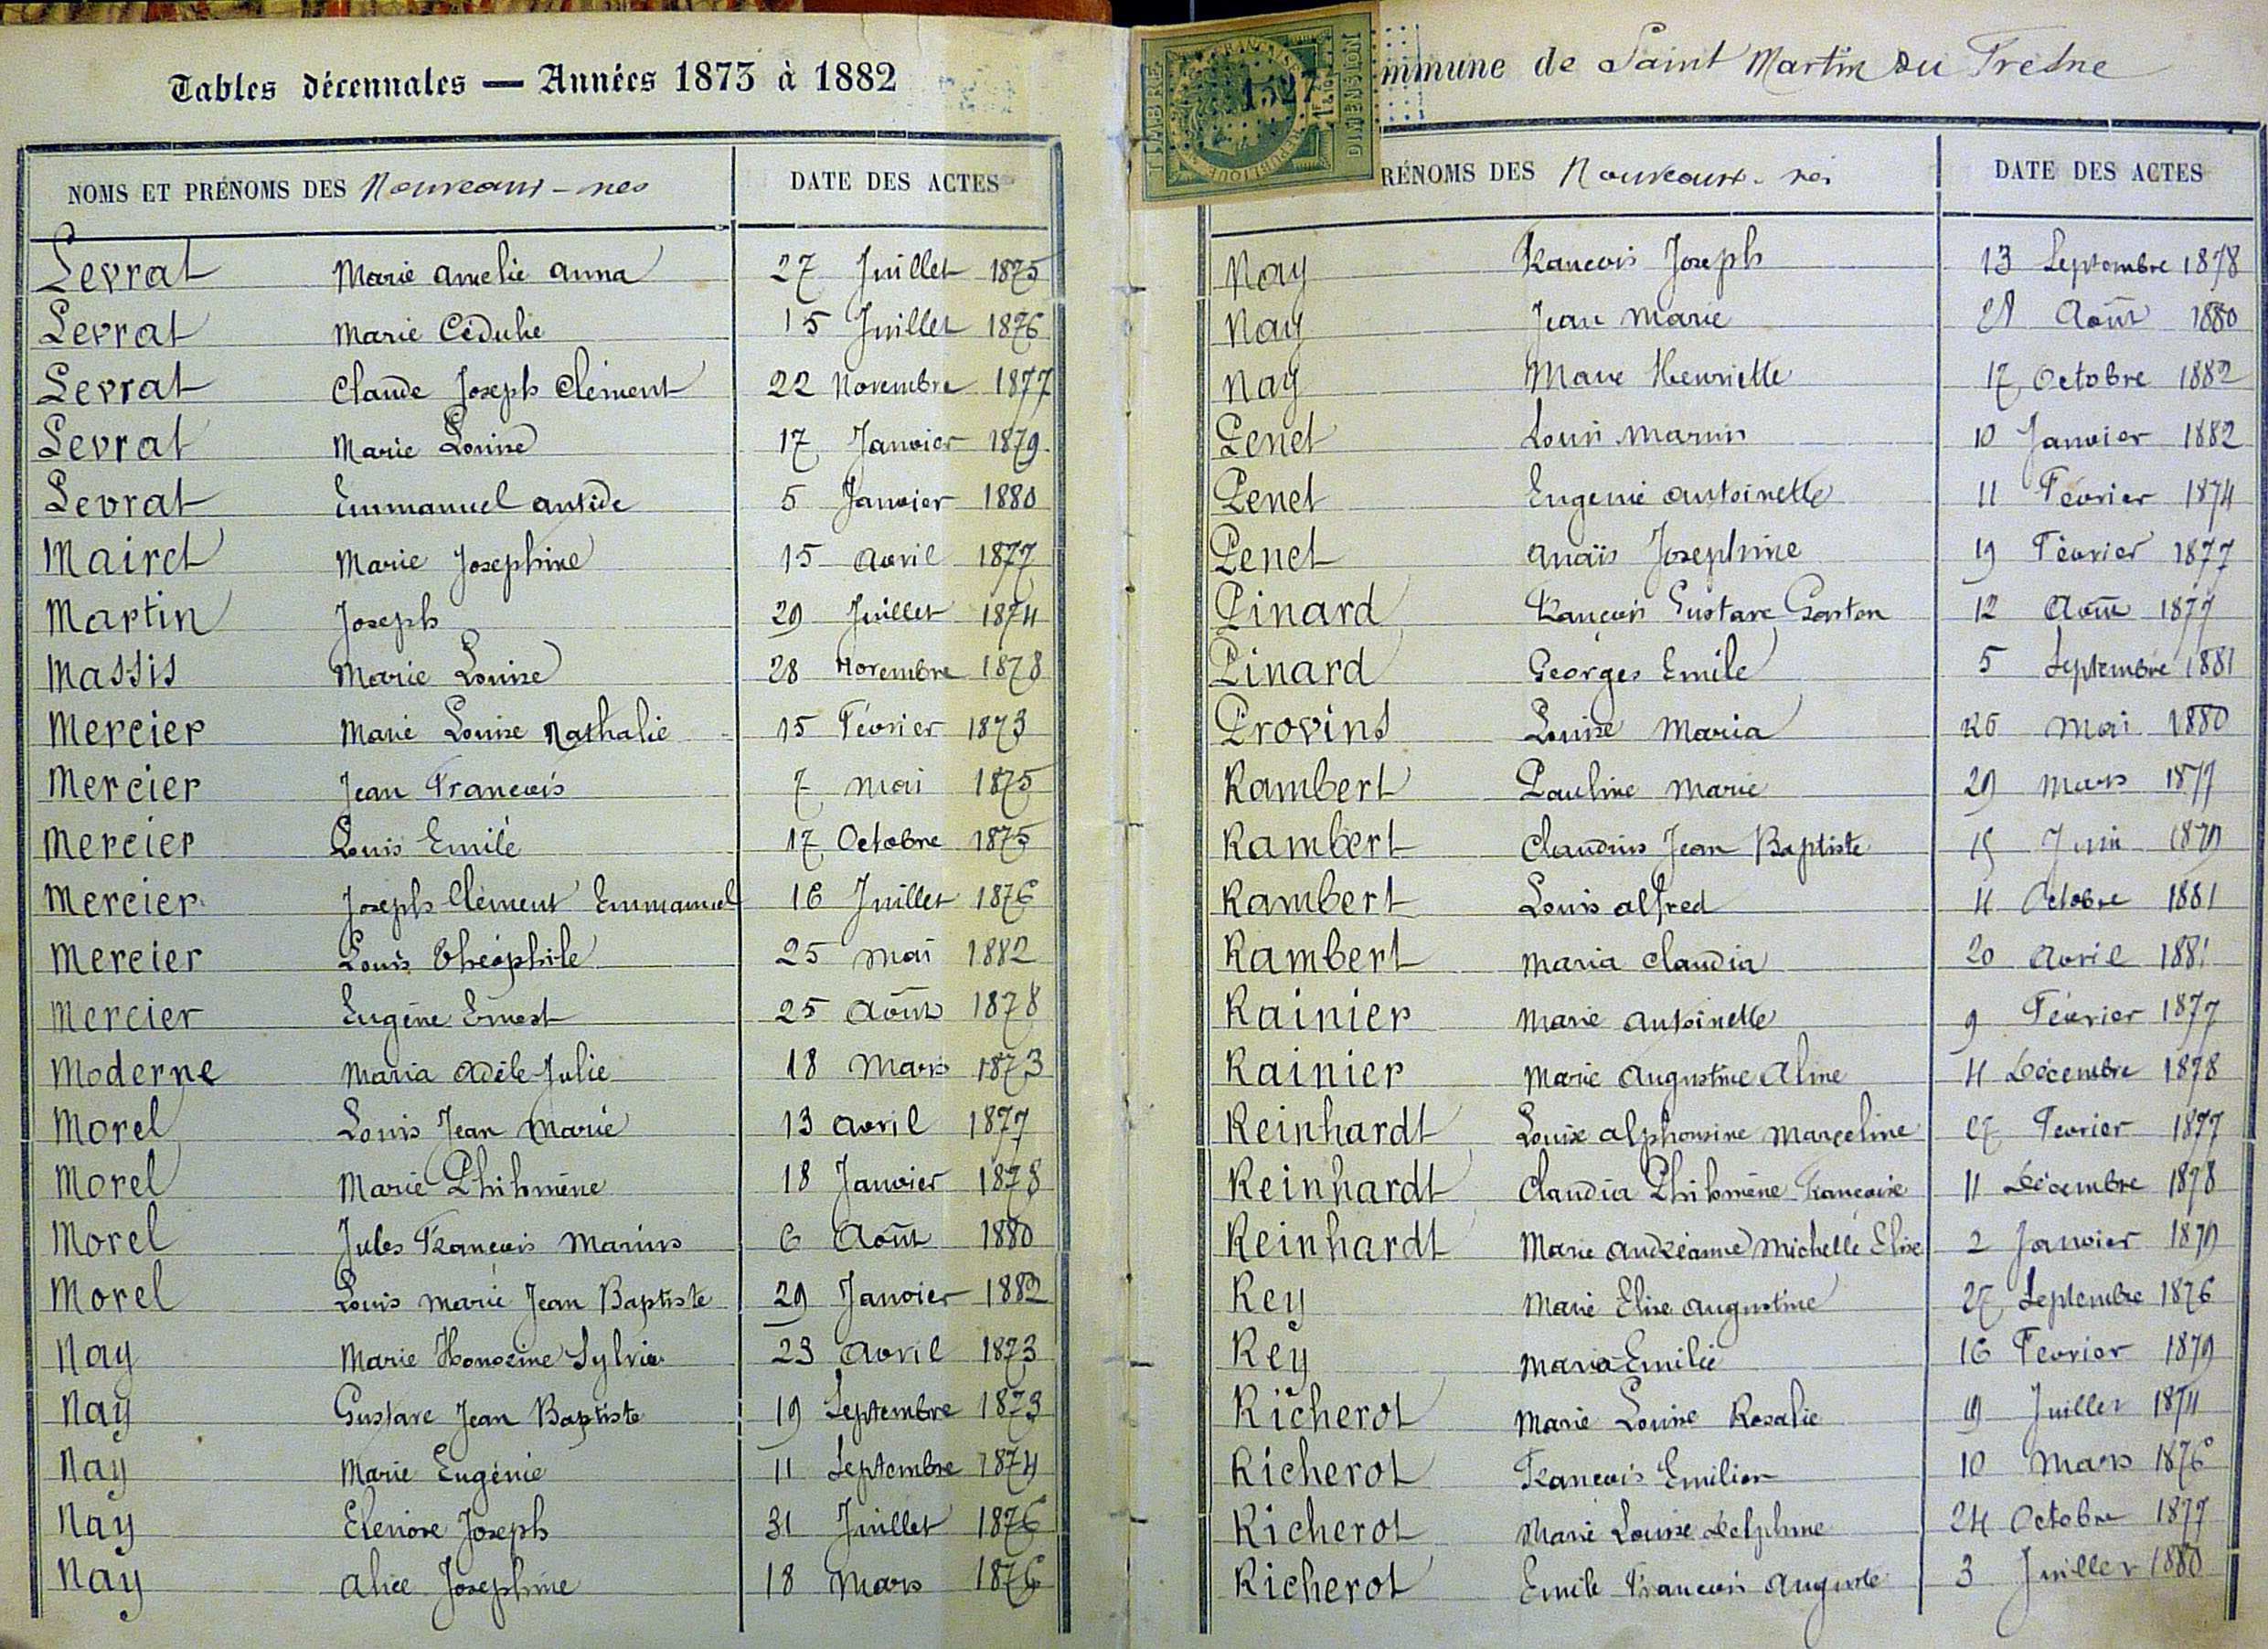 Tables décennales — Années 1873 à 1882
NOMS ET PRÉNOMS DES Nouveaux-nés DATE DES ACTES
Levrat Marie Amelie Anna 27 Juillet 1875
Levrat Marie Cédulie 15 Juillet 1876
Levrat Claude Joseph Clément 22 Novembre 1877
Levrat Marie Louise 17 Janvier 1879
Levrat Emmanuel Antide 5 Janvier 1880
Mairet Marie Josephine 15 Avril 1877
Martin Joseph 29 Juillet 1874
Massis Marie Louise 28 Novembre 1878
Mercier Marie Louise Nathalie 15 Février 1873
Mercier Jean Francois 7 Mai 1875
Mercier Louis Emile 17 Octobre 1875
Mercier Joseph Clément Emmanuel 16 Juillet 1876
Mercier Louis Théophile 25 Mai 1882
Mercier Eugène Ernest 25 Août 1878
Moderne Maria Adèle Julie 18 Mars 1873
Morel Louis Jean Marie 13 Avril 1877
Morel Marie Philomène 18 Janvier 1878
Morel Jules Francois Marius 6 Août 1880
Morel Louis Marie Jean Baptiste 29 Janvier 1882
Nay Marie Honorine Sylvie 23 Avril 1873
Nay Gustave Jean Baptiste 19 Septembre 1873
Nay Marie Eugénie 11 Septembre 1874
Nay Elenore Joseph 31 Juillet 1876
Nay Alice Josephine 18 Mars 1876
TIMBRE DIMENSION
RÉPUBLIQUE FRANÇAISE
1527
mmune de Saint Martin du Fresne
RÉNOMS DES Nouveaux-nés DATE DES ACTES
Nay Francois Joseph 13 Septembre 1878
Nay Jean Marie Août 1880
Nay Marie Henriette 17 Octobre 1882
Penet Louis Marius 10 Janvier 1882
Penet Eugenie Antoinette 11 Février 1874
Penet Anaïs Josephine 19 Février 1877
Pinard Francois Gustave Gaston 12 Août 1877
Pinard Georges Emile 5 Septembre 1881
Provins Louise Maria 26 Mai 1880
Rambert Pauline Marie 29 Mars 1877
Rambert Claudius Jean Baptiste 15 Juin 1879
Rambert Louis Alfred Octobre 1881
Rambert Maria Claudia 20 Avril 1881
Rainier Marie Antoinette 9 Février 1877
Rainier Marie Augustine Aline 4 Décembre 1878
Reinhardt Louise Alphonsine Marceline 27 Fevrier 1877
Reinhardt Claudia Philomène Francoise 11 Décembre 1878
Reinhardt Marie Andréanne Michelle Elise 2 Janvier 1879
Rey Marie Elise Augustine 27 Septembre 1876
Rey Maria Emilie 16 Fevrier 1879
Richerot Marie Louise Rosalie 19 Juillet 1874
Richerot Francois Emilien 10 Mars 1876
Richerot Marie Louise Delphine 24 Octobre 1877
Richerot Emile Francois Auguste 3 Juillet 1880